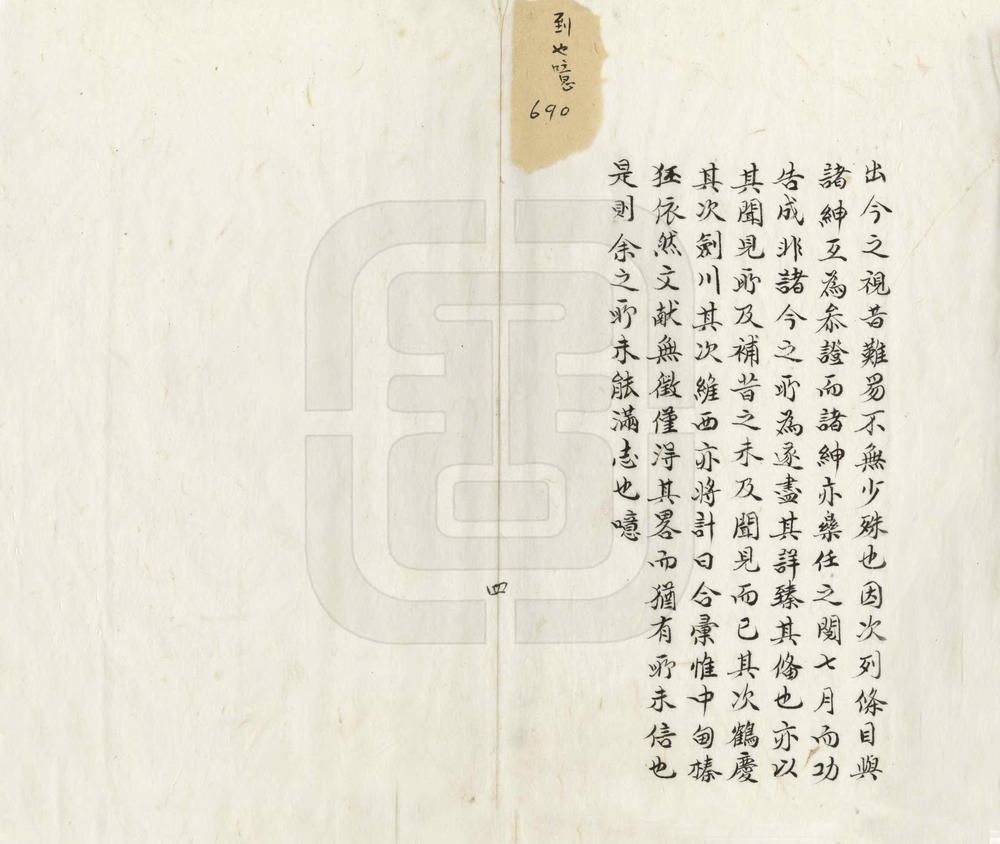 到也噫
690
出今之視昔難易不無少殊也因次列條目與
諸紳互為叅證而諸紳亦樂任之閱七月而功
告成非諸今之所為遂盡其詳臻其俻也亦以
其聞見所及補昔之未及聞見而已其次鶴慶
其次劍川其次維西亦將計日合彚惟中甸榛
狂依然文献無徵僅淂其畧而猶有所未信也
是則余之所未能滿志也噫
四